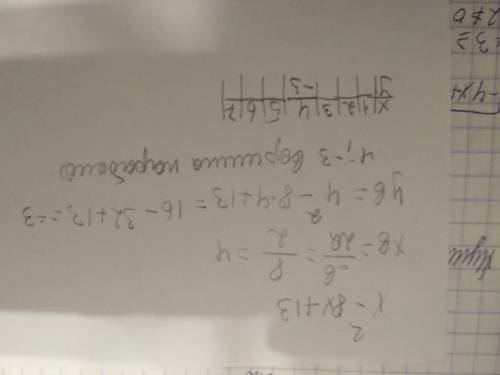 x² - 8x + 13
xв = -в/2а = 8/2 = 4
yв = 4² - 8·4 + 13 = 16 - 32 + 13 = -3
4; -3 вершина параболы
x | 1 | 2 | 3 | 4 | 5 | 6 | 7 |
y | | | | -3 | | | |